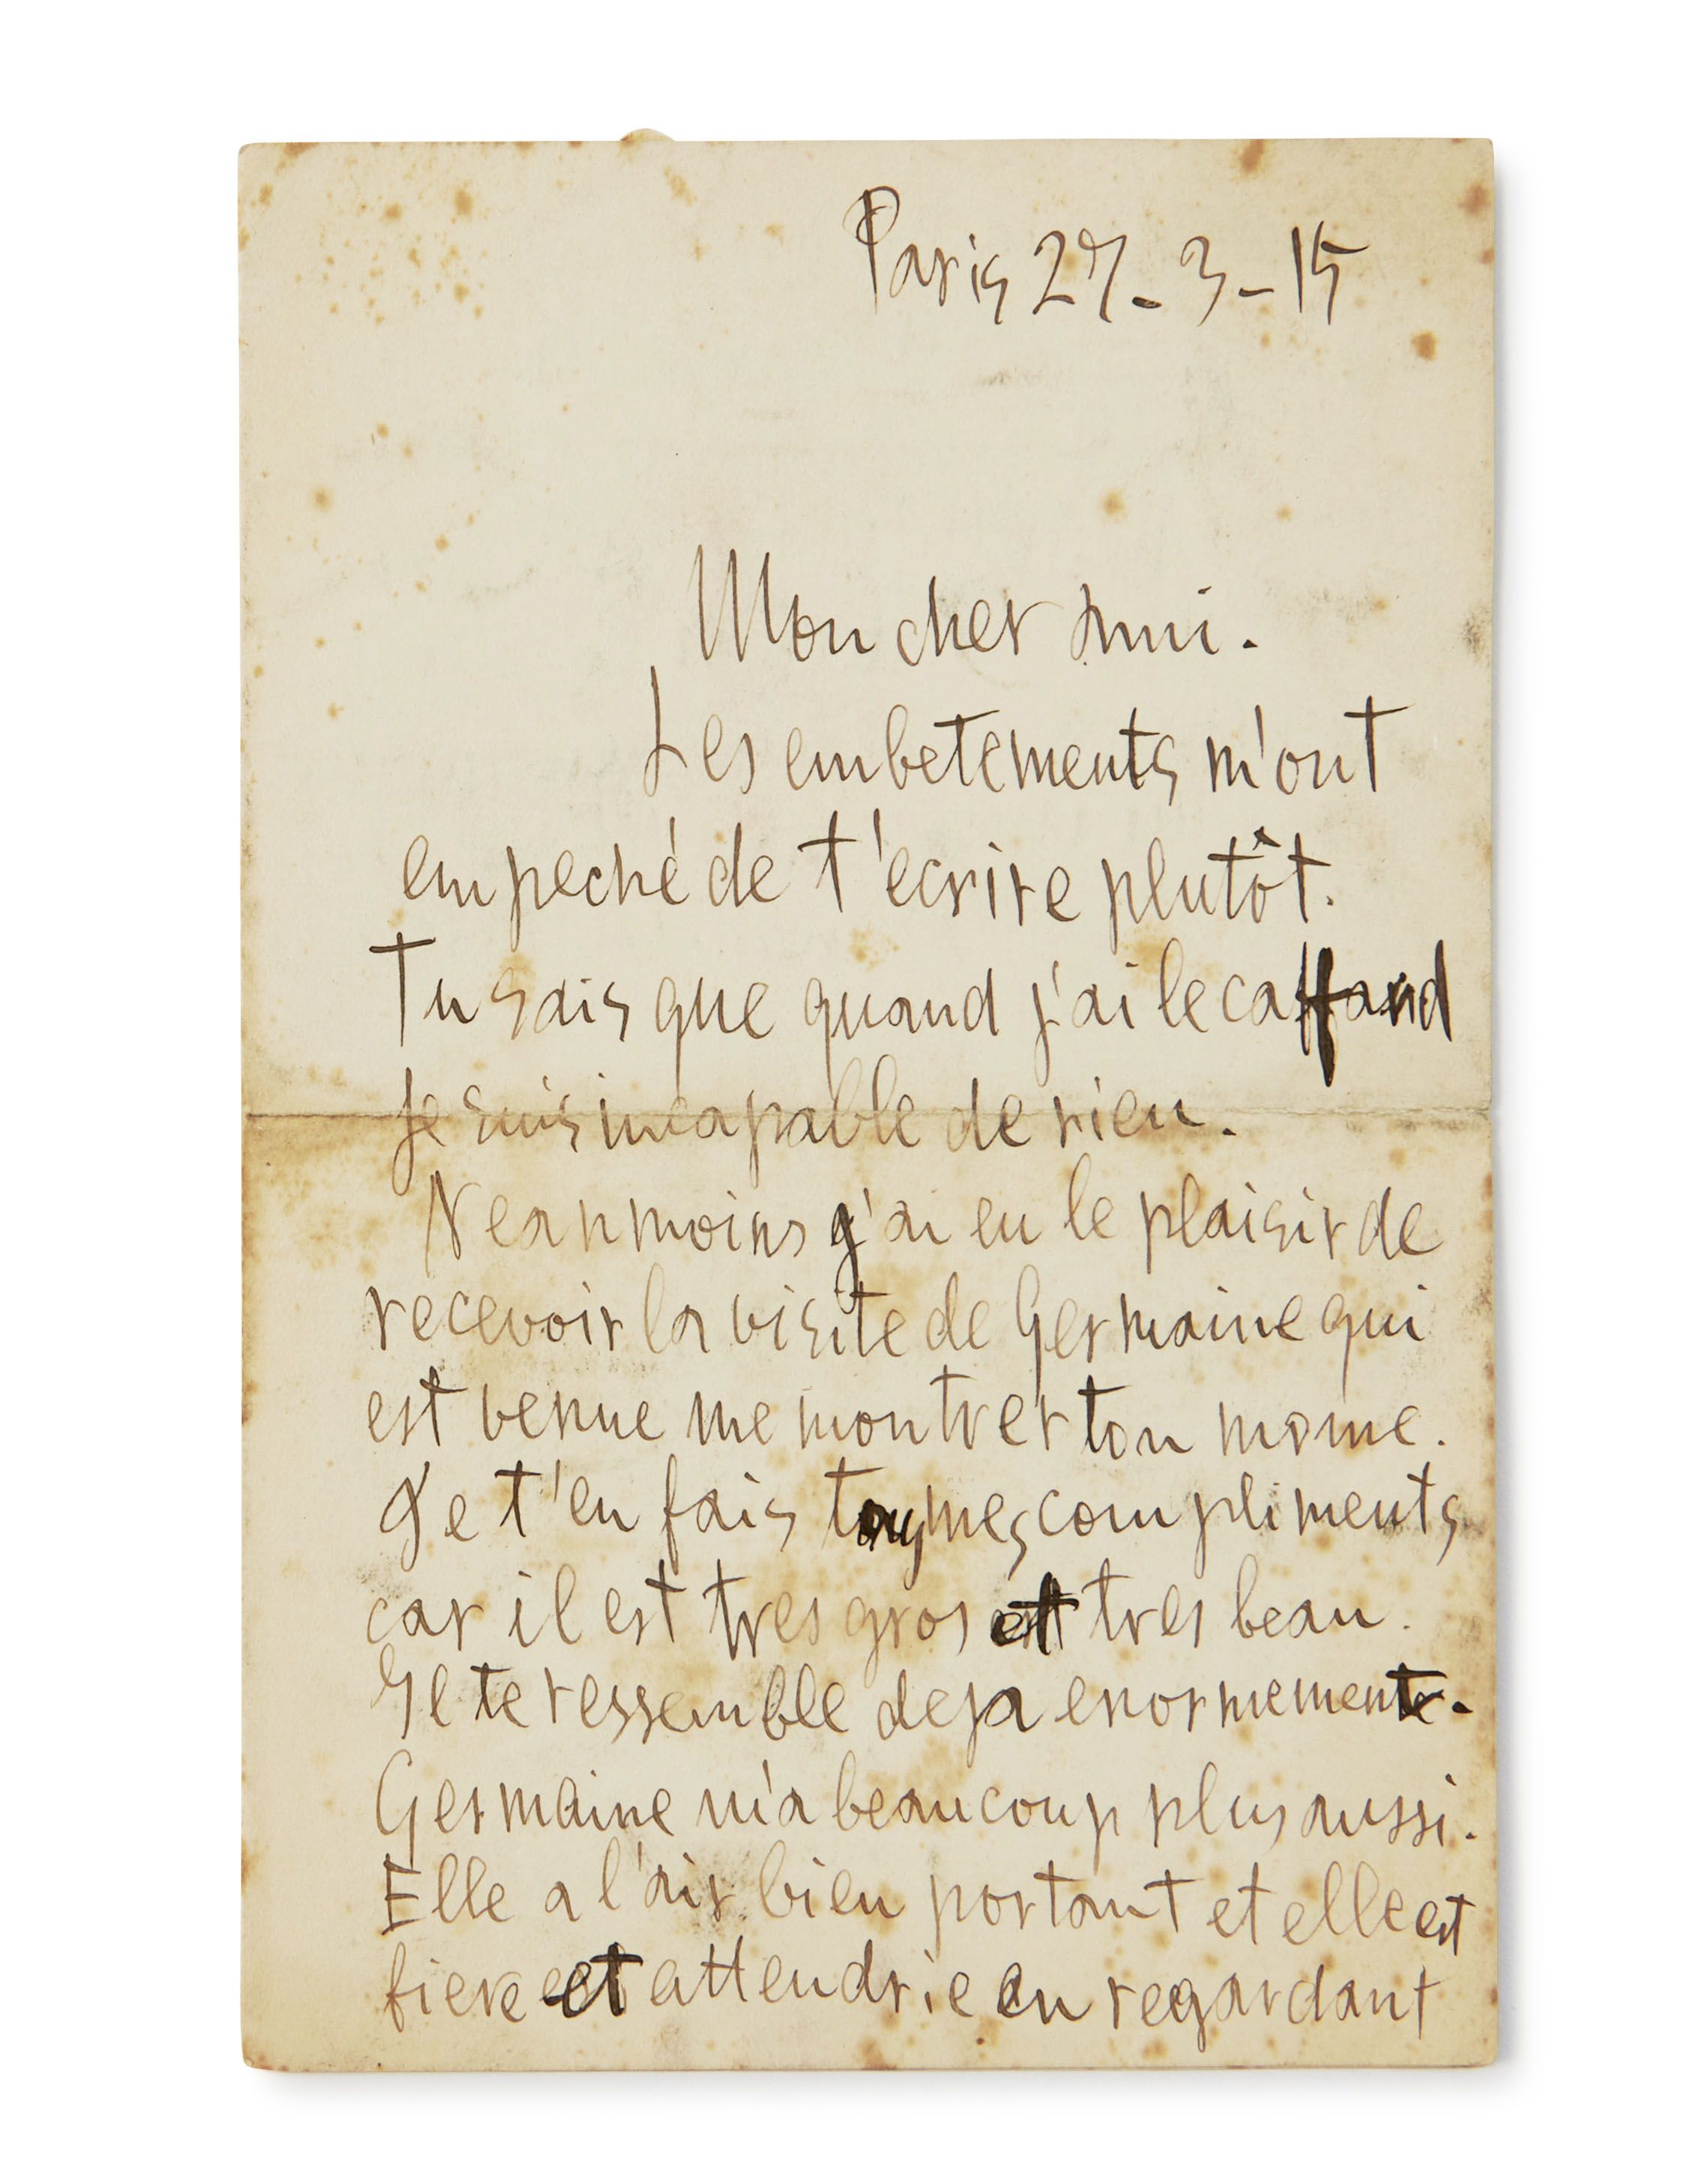 Paris 27-3-15
Mon cher Ami.
Les embetements m'ont
empeché de t'ecrire plutôt.
Tu sais que quand j'ai le caffard
je suis incapable de rien.
Neanmoins j'ai eu le plaisir de
recevoir la visite de Germaine qui
est venue me montrer ton mome.
Je t'en fais tous mes compliments
car il est tres gros et tres beau.
Il te ressemble deja enormement.
Germaine m'a beaucoup plus aussi.
Elle a l'air bien portant et elle est
fiere et attendrie en regardant